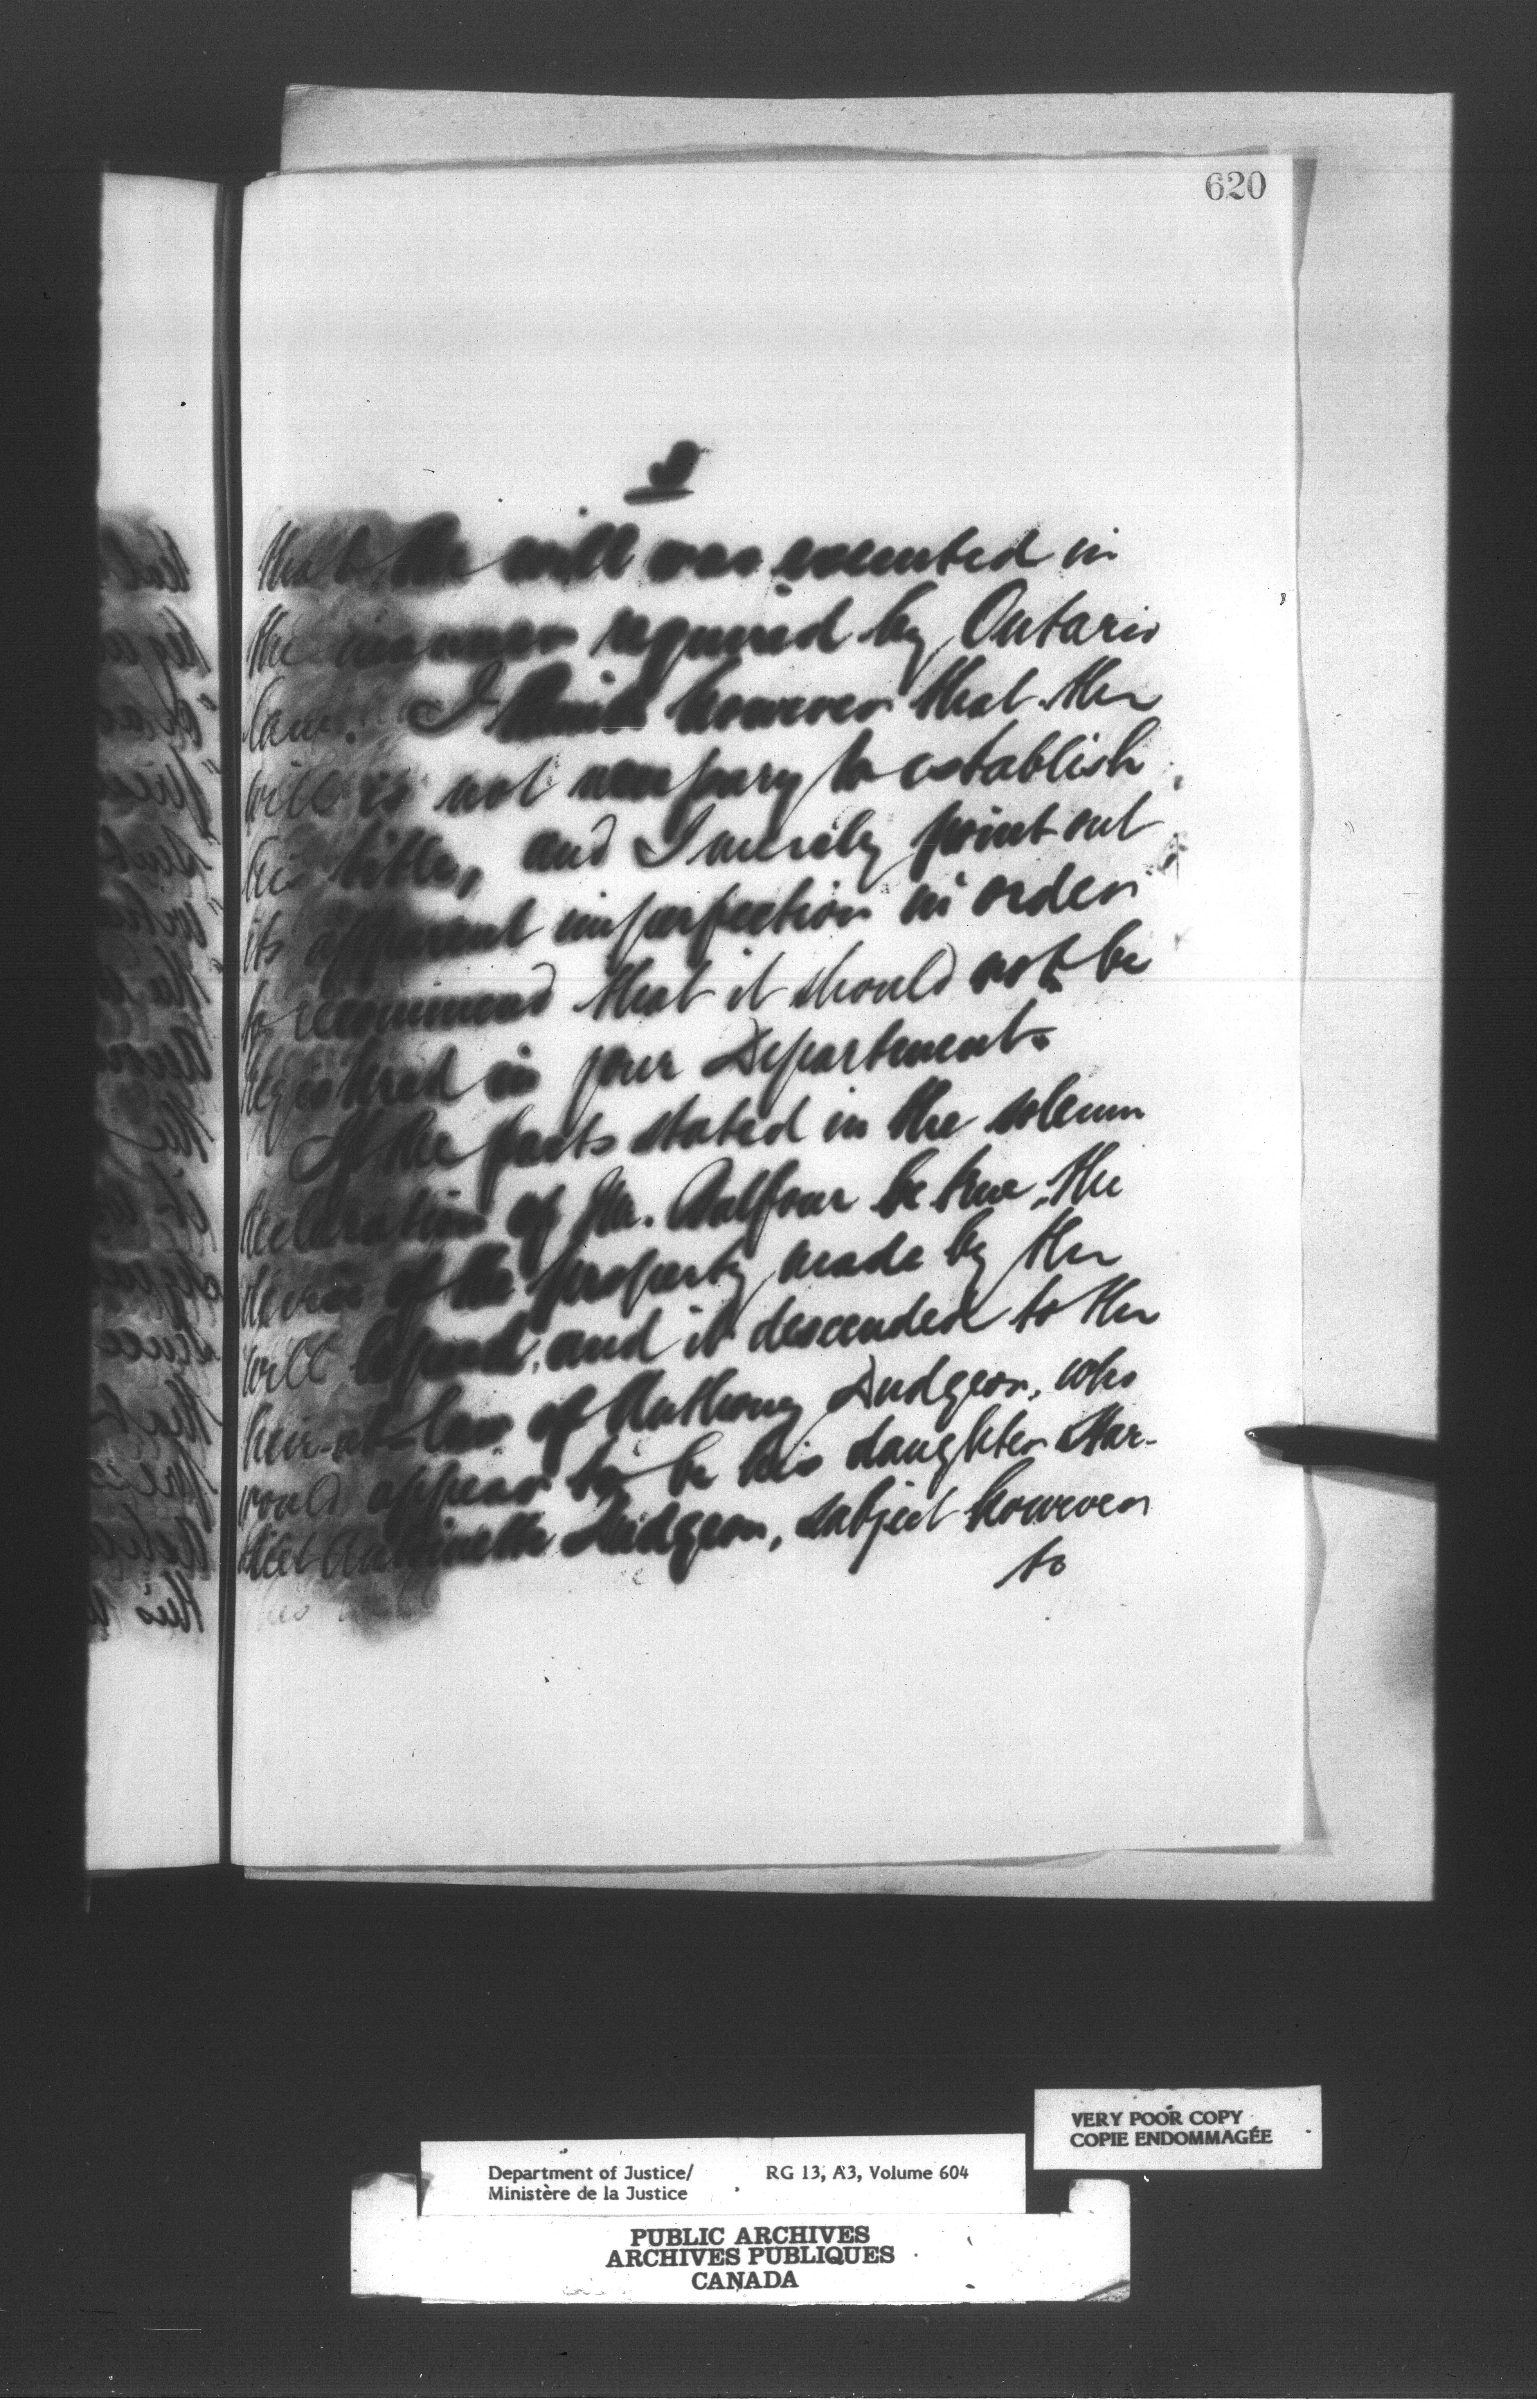 620
that the will was executed in
the manner required by Ontario
law. I think however that the
will is not necessary to establish
his title, and I merely point out
its apparent imperfection in order
to recommend that it should not be
registered in your Department.
If the facts stated in the solemn
declaration of Mr. Balfour be true, the
devise of the property made by the
will lapsed, and it descended to the
heir-at-law of Anthony Dudgeon, who
would appear to be his daughter Har-
riet Antoinette Dudgeon, subject however
to
VERY POOR COPY
COPIE ENDOMMAGÉE
Department of Justice/ RG 13, A3, Volume 604
Ministère de la Justice
PUBLIC ARCHIVES
ARCHIVES PUBLIQUES
CANADA